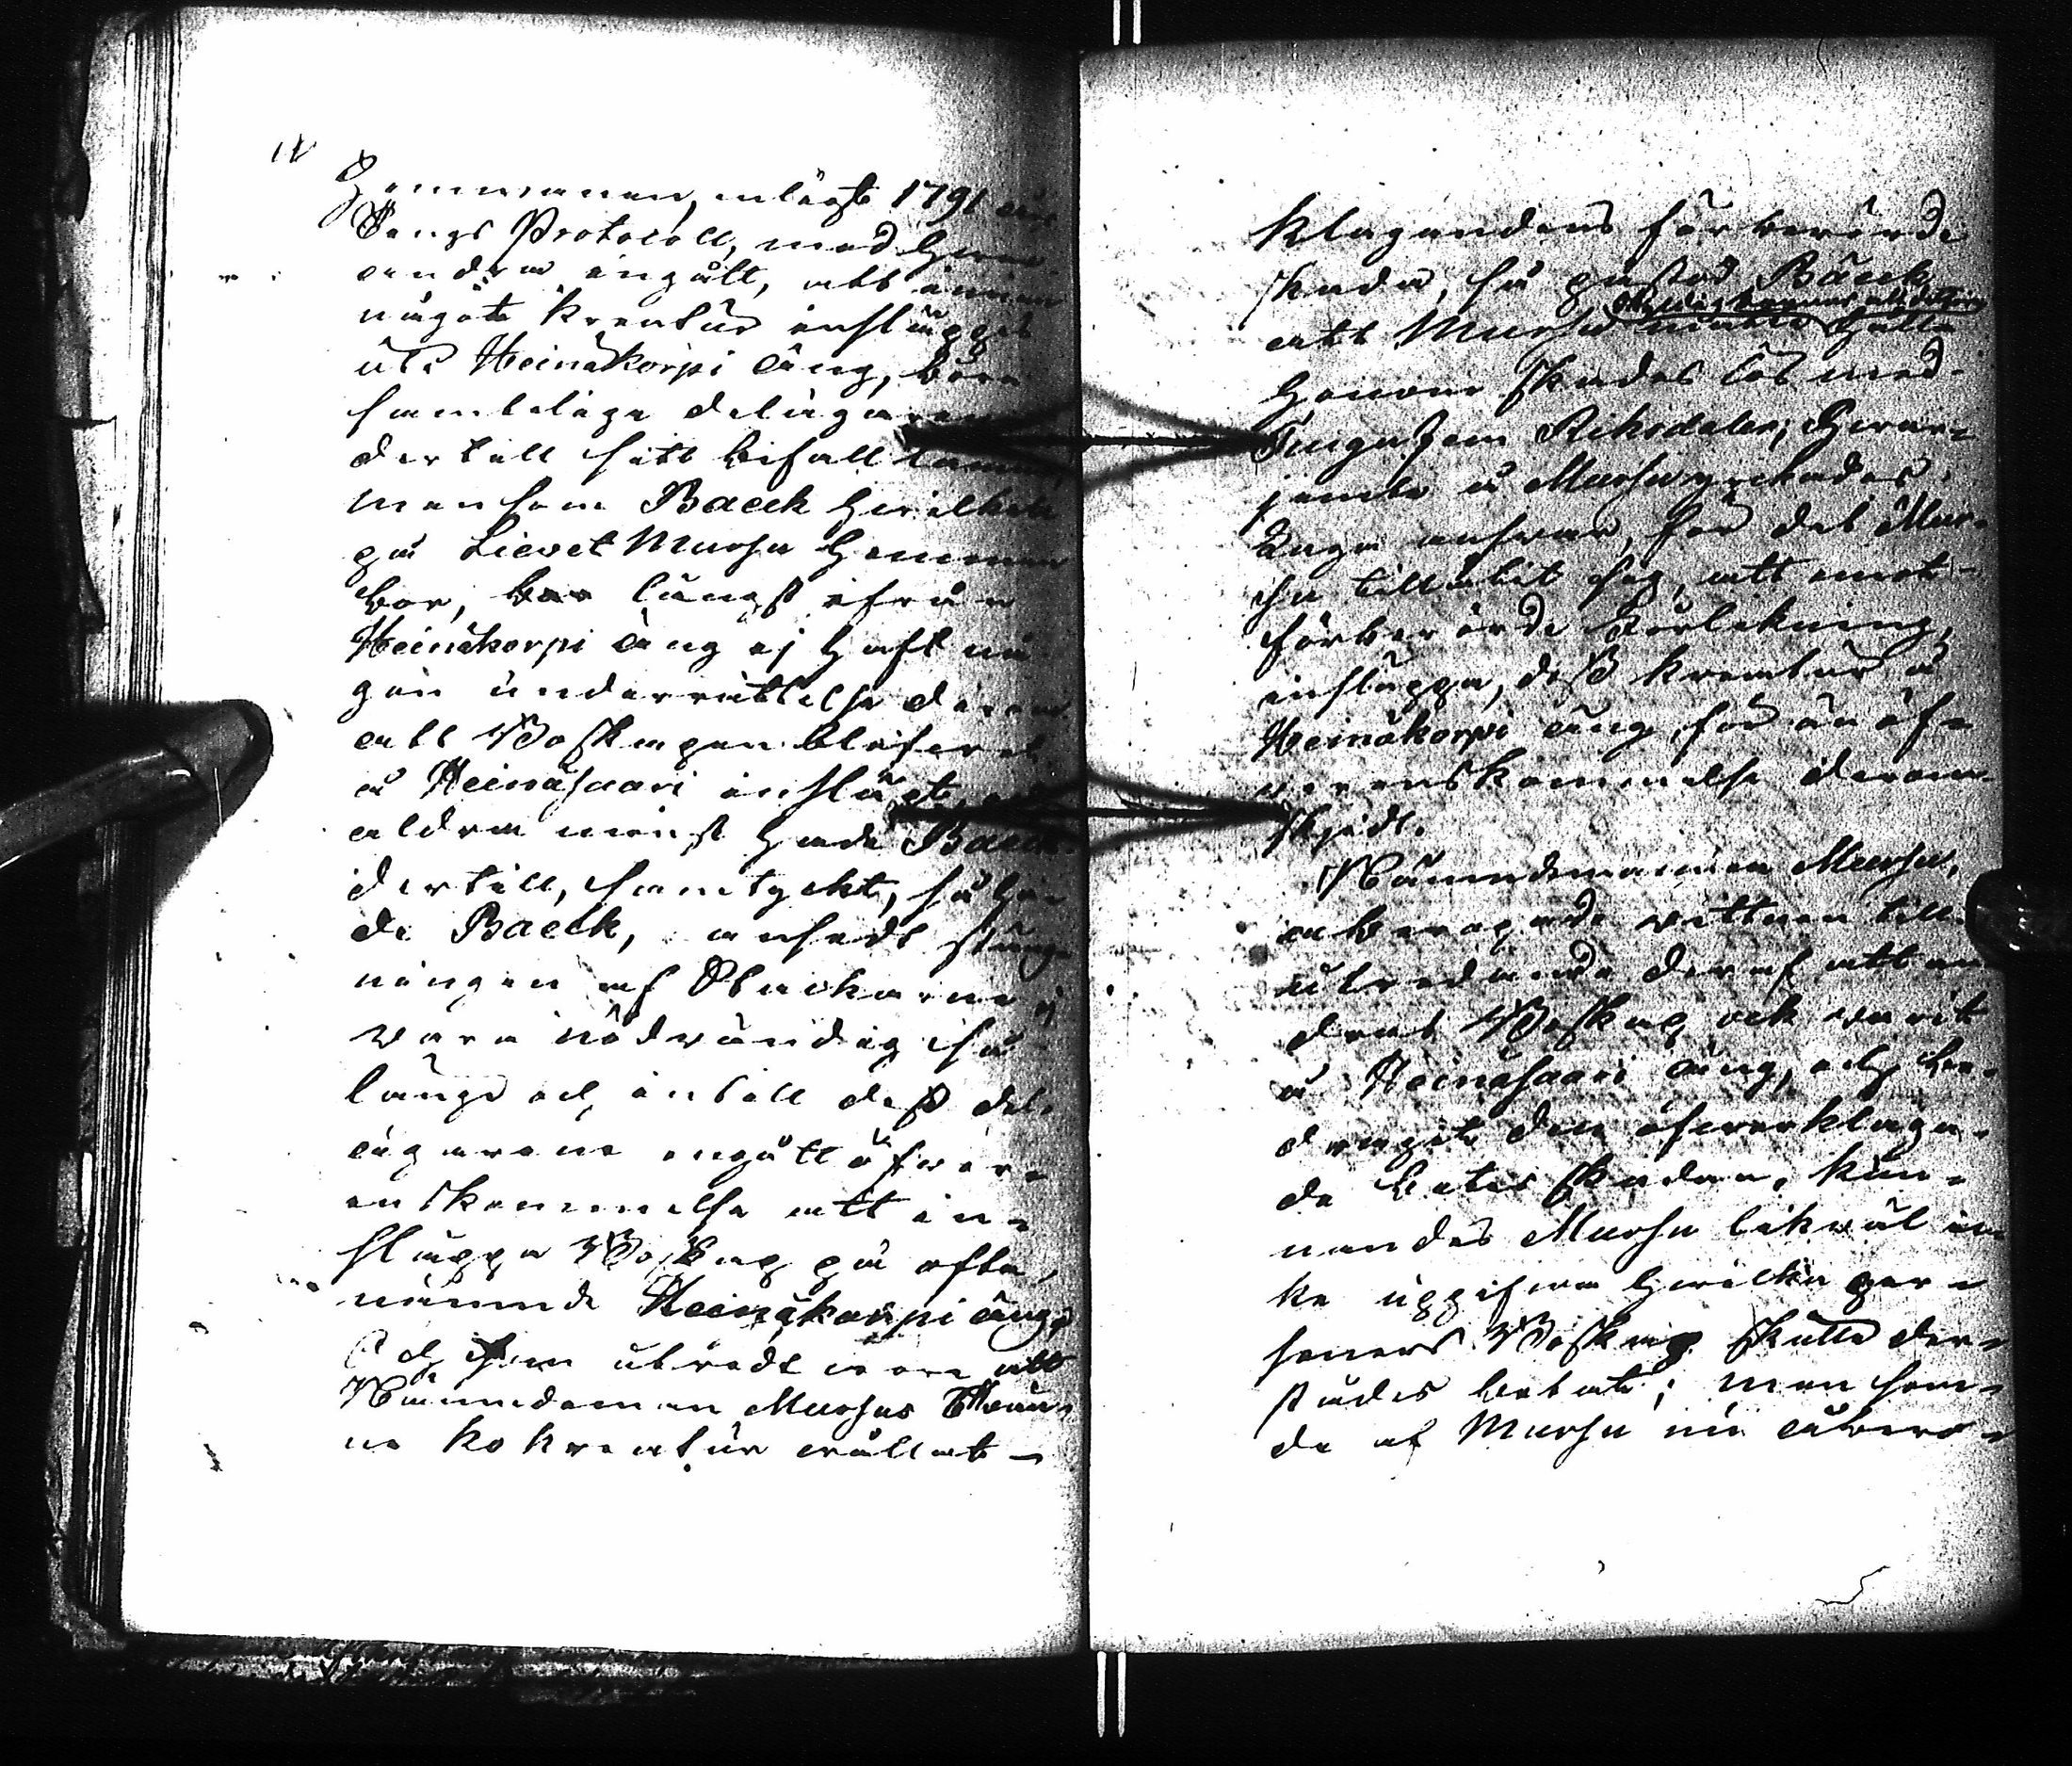 Hemmanen, enligt 1791 års
Tings Protocoll, med hvar
andra ingått, att innan
någote kreatur insläppes
uti Heinäkorpi äng, böra
samtelige delägaren
dertill sitt bifall lämna,
men som Baeck hvilken
på Lievet Mursu Hemman
bor, bor längst ifrån
Heinäkorpi äng ej haft nå
gon underrättelse derom
att Boskapen blifvit
å Heinäsaari inslägte,
aldra minst hade Baeck
dertill, samtyckt, så ha
de Baeck, ansedt stäng
ningen af Stackarne ej
vara nödvändig så
länge och intill dess del
ägarene ingått öfver
enskommelse att in
släppa Boskap på ofta
nämnde Heinäkorpi äng;
Och som utredt vore att
Nämndeman Mursus
ne ko kreatur vållat
klagandens förberörde
skada, så påstod Bäeck
att Mursu måtte hålla
honom skadeslös med
Tingu fem Riksdaler; hvar-
jemte å Mursu yrckades
Laga ansvar, för det Mur-
su tillåtit sig, att emot
förberörde Förlikning,
insläppa, dess kreatur å
Heinäkorpi äng, förän öf-
verenskommelse derom
skjedt.
Nämndemannen Mursu,
åberopade vittnen till
utredande deraf att an
dras Boskap ock varit
å Heinäsaari äng, och be-
dragit den öfverklaga-
de betes skadan, kun-
nandes Mursu likväl in
ke uppgifva hvilka per-
soners Boskap skulle der-
städes betat; men som
de af Mursu nu åbero-